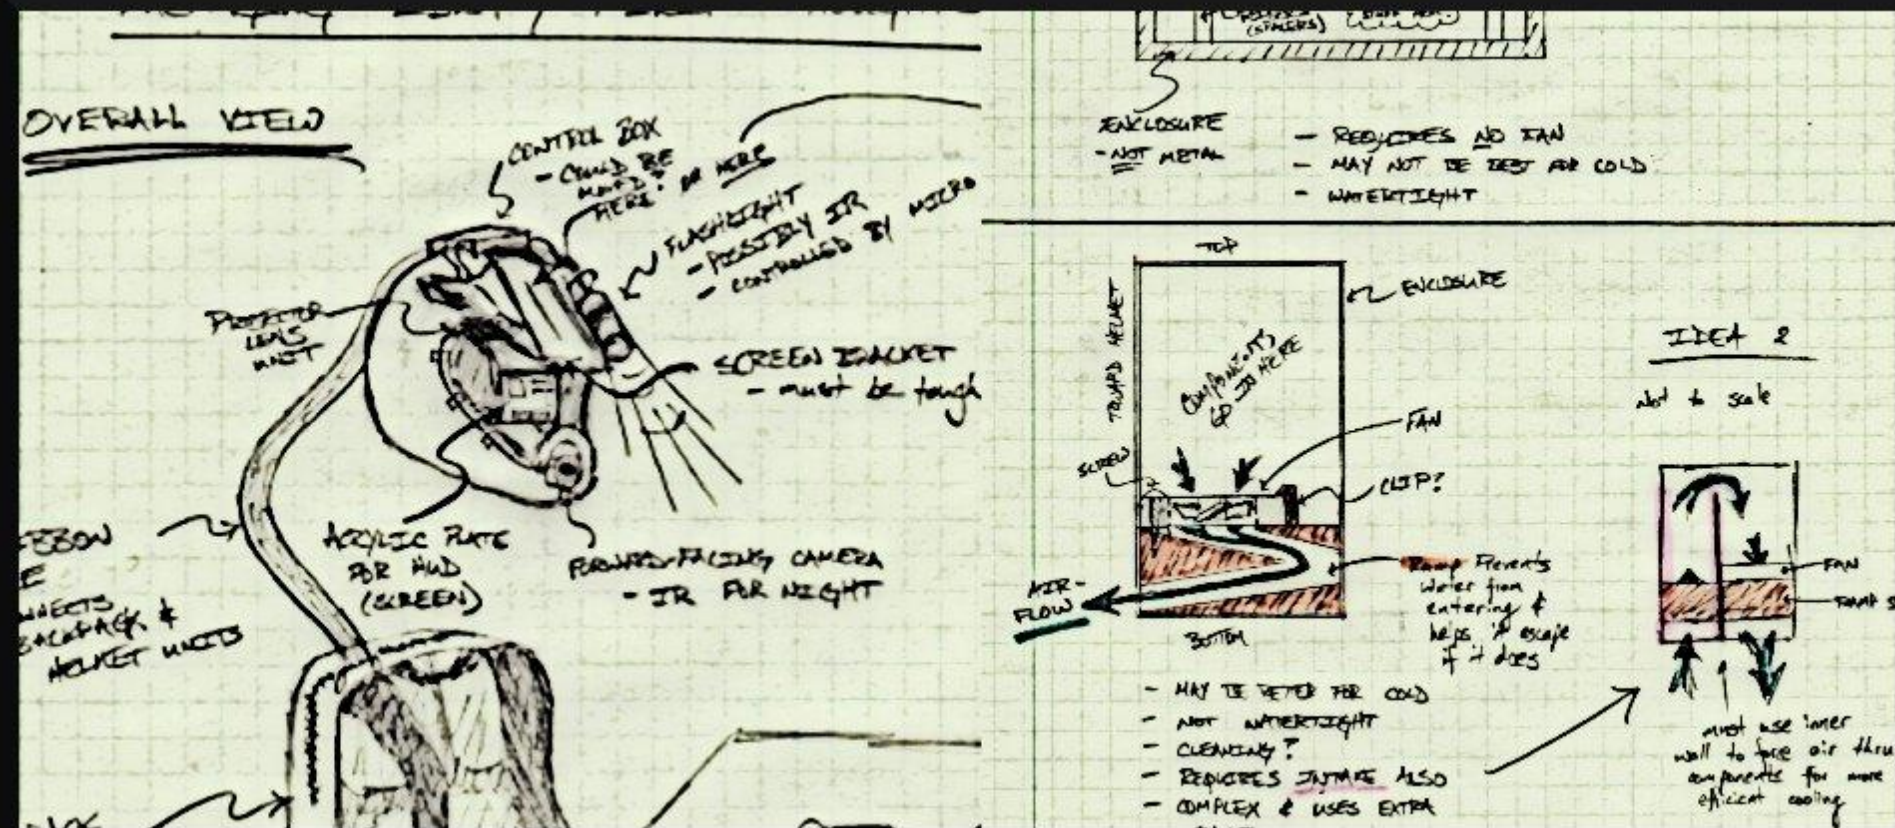 OVERALL VIEW
CONTROL BOX
- COULD BE
HERE? OR HERE
FLASHLIGHT
- POSSIBLY IR
- CONTROLLED BY MICRO
PROJECTOR
LENS
UNIT
SCREEN BRACKET
- must be tough
ACRYLIC PLATE
FOR HUD
(SCREEN)
FORWARD-FACING CAMERA
- IR FOR NIGHT
BACKPACK &
HELMET UNITS
(SPACERS)
ENCLOSURE
- NOT METAL
- REQUIRES NO FAN
- MAY NOT BE BEST FOR COLD
- WATERTIGHT
TOP
ENCLOSURE
TOWARD HELMET
COMPONENTS
GO IN HERE
FAN
SCREW
CLIP?
AIR-
FLOW
BOTTOM
Ramp Prevents
water from
entering &
helps it escape
if it does
- MAY BE BETTER FOR COLD
- NOT WATERTIGHT
- CLEANING?
- REQUIRES INTAKE ALSO
- COMPLEX & USES EXTRA
IDEA 2
Not to scale
FAN
RAMP S
must use inner
wall to force air thru
components for more
efficient cooling